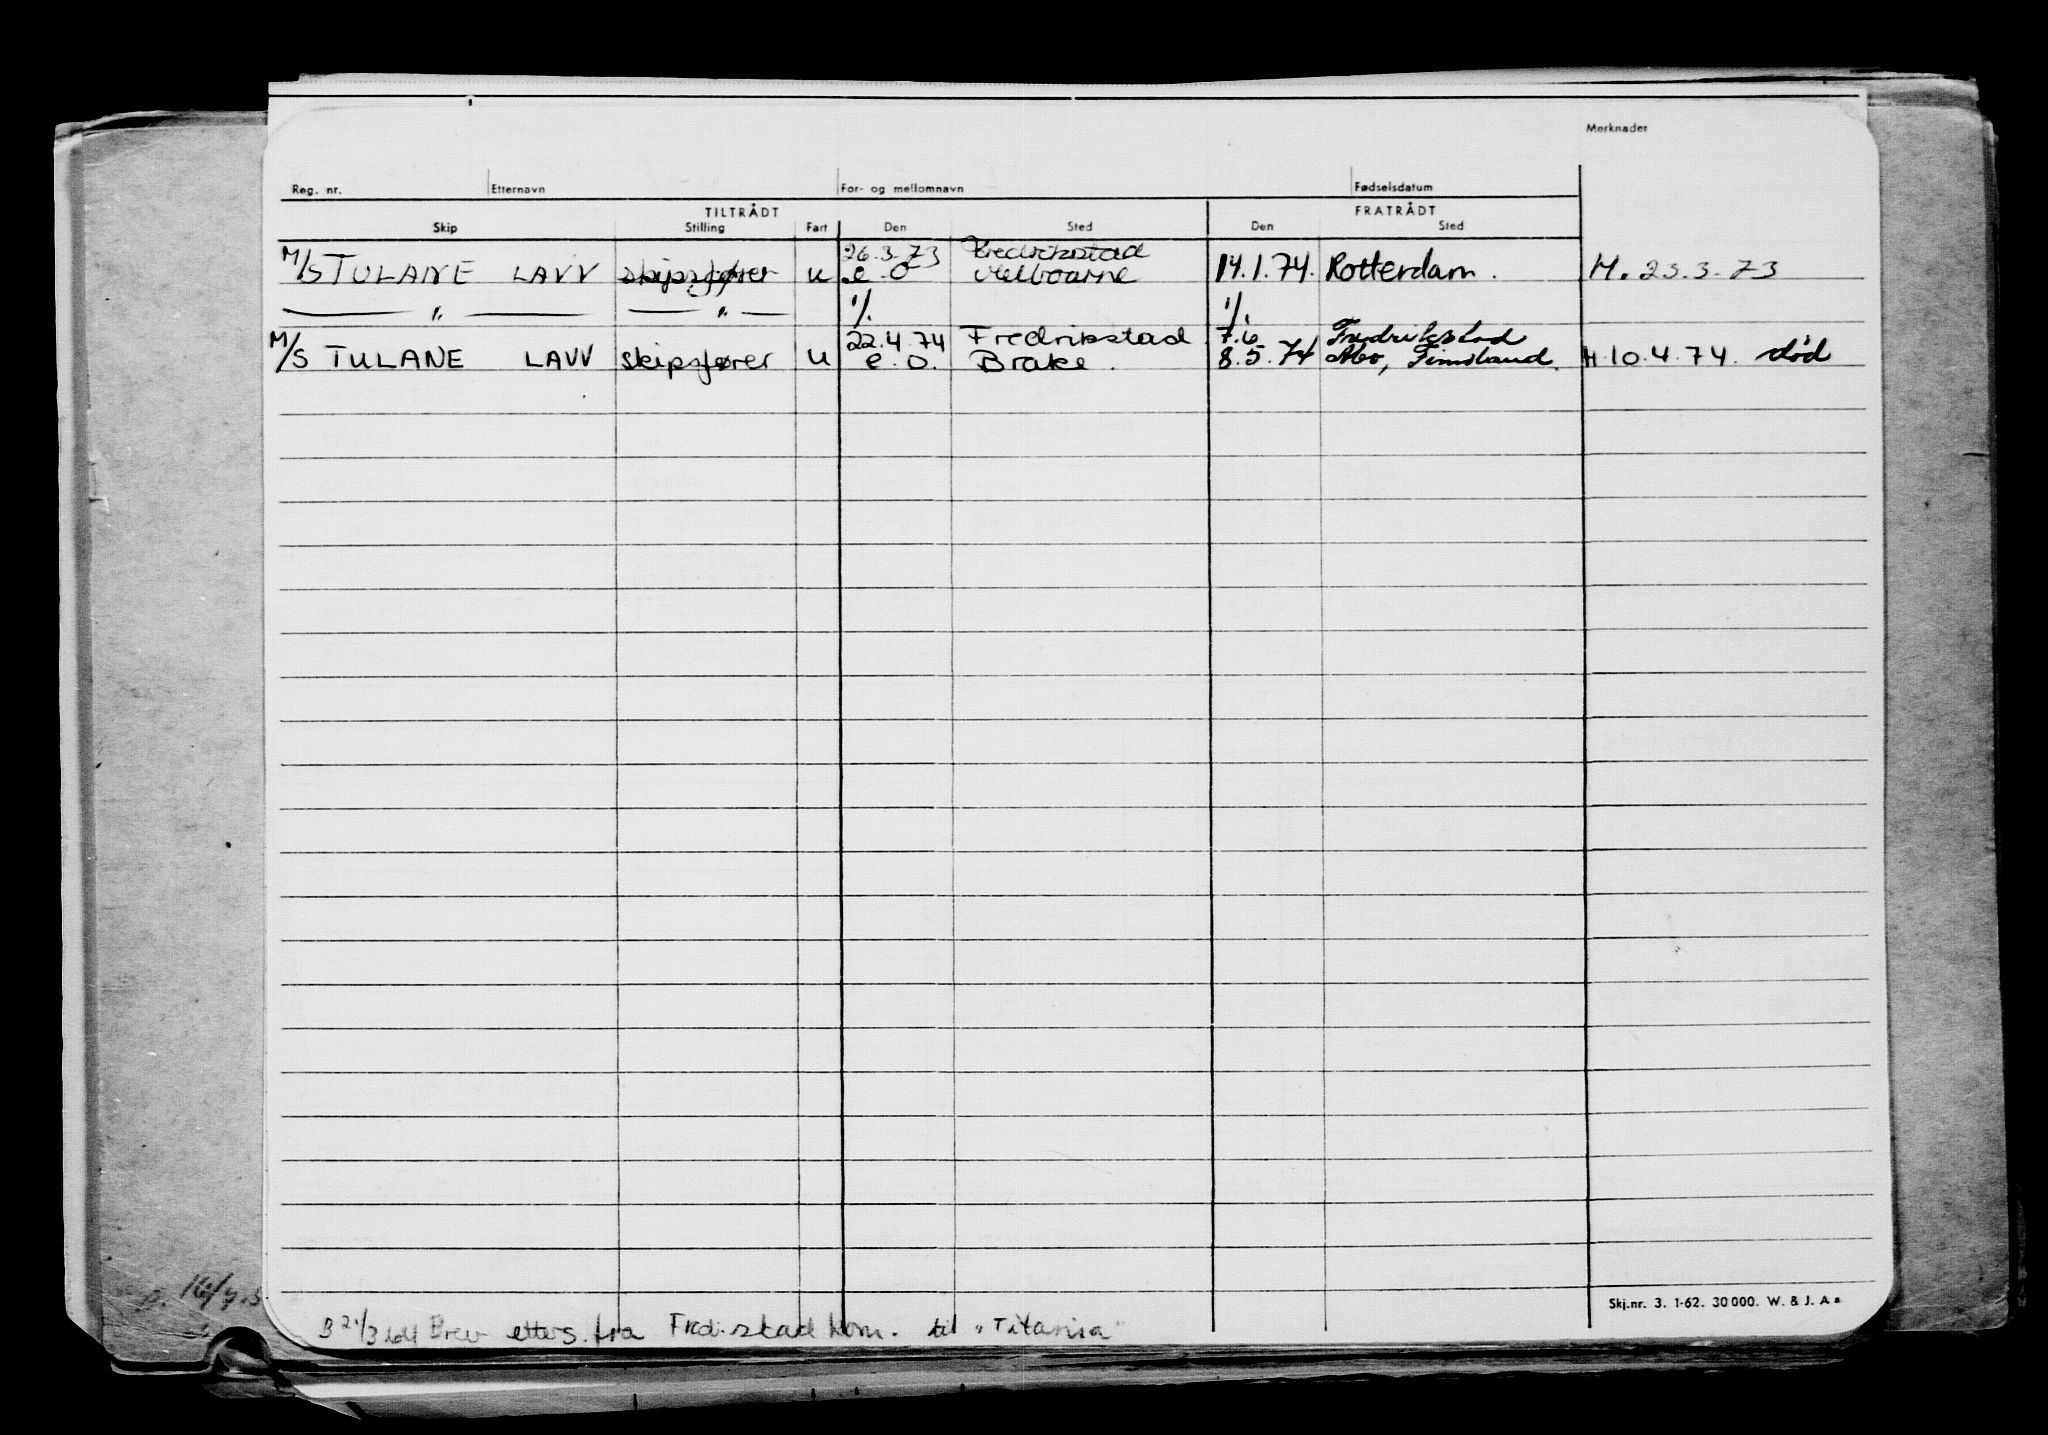 Merknader
Reg. nr. Etternavn For- og mellomnavn Fødselsdatum
TILTRÅDT FRATRÅDT
Skip Stilling Fart Den Sted Den Sted
26.3.73 Fredrikstad
M/S TULANE LAVV skipsfører u e.O Melbourne 14.1.74. Rotterdam. M. 23.3.73
— " — — " — 1/. 1/.
22.4.74 Fredrikstad 7.6 Fredrikstad
M/S TULANE LAVV skipsfører u e.O. Brake. 8.5.74 Abo, Finnland. H 10.4.74. død
Skj.nr. 3. 1-62. 30 000. W. & J. A s
Brev etters. fra Fred.stad kom. til "Titania"